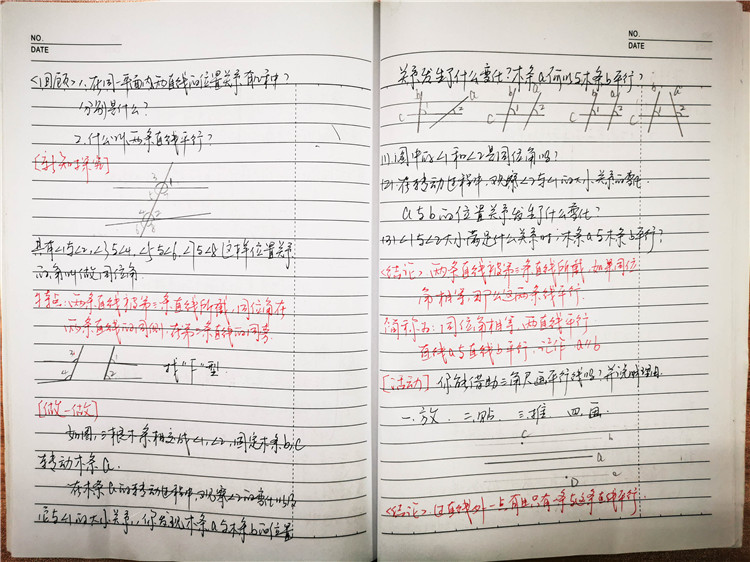 NO.
DATE
<回顾> 1. 在同一平面内两直线的位置关系有几种?
分别是什么?
2. 什么叫两条直线平行?
[新知探究]
具有∠1与∠2, ∠3与∠4, ∠5与∠6, ∠7与∠8 这样位置关系
的角叫做同位角
特点: 两条直线被第三条直线所截, 同位角在
两条直线的同侧, 在第三条直线的同旁
找"F"型.
[做一做]
如图, 三根木条相交成∠1, ∠2, 固定木条b, c
转动木条a.
在木条a的转动过程中, 观察∠2的变化以及
它与∠1的大小关系, 你发现木条a与木条b的位置
NO.
DATE
关系发生了什么变化? 木条a何时与木条b平行?
b 1 2 a c
b a 1 2 c
b a 1 2 c
b a 1 2
(1) 图中的∠1和∠2是同位角吗?
(2) 在转动过程中, 观察∠2与∠1的大小关系的变化
a与b的位置关系发生了什么变化?
(3) ∠1与∠2大小满足什么关系时, 木条a与木条b平行?
<结论> 两条直线被第三条直线所截, 如果同位
角相等, 那么这两条线平行.
简称为: 同位角相等, 两直线平行
直线a与直线b平行, 记作 a∥b
[活动] 你能借助三角尺画平行线吗? 并说明理由
一放 二贴 三推 四画
c b
a
D
<结论> 过直线外一点有且只有一条与这条直线平行